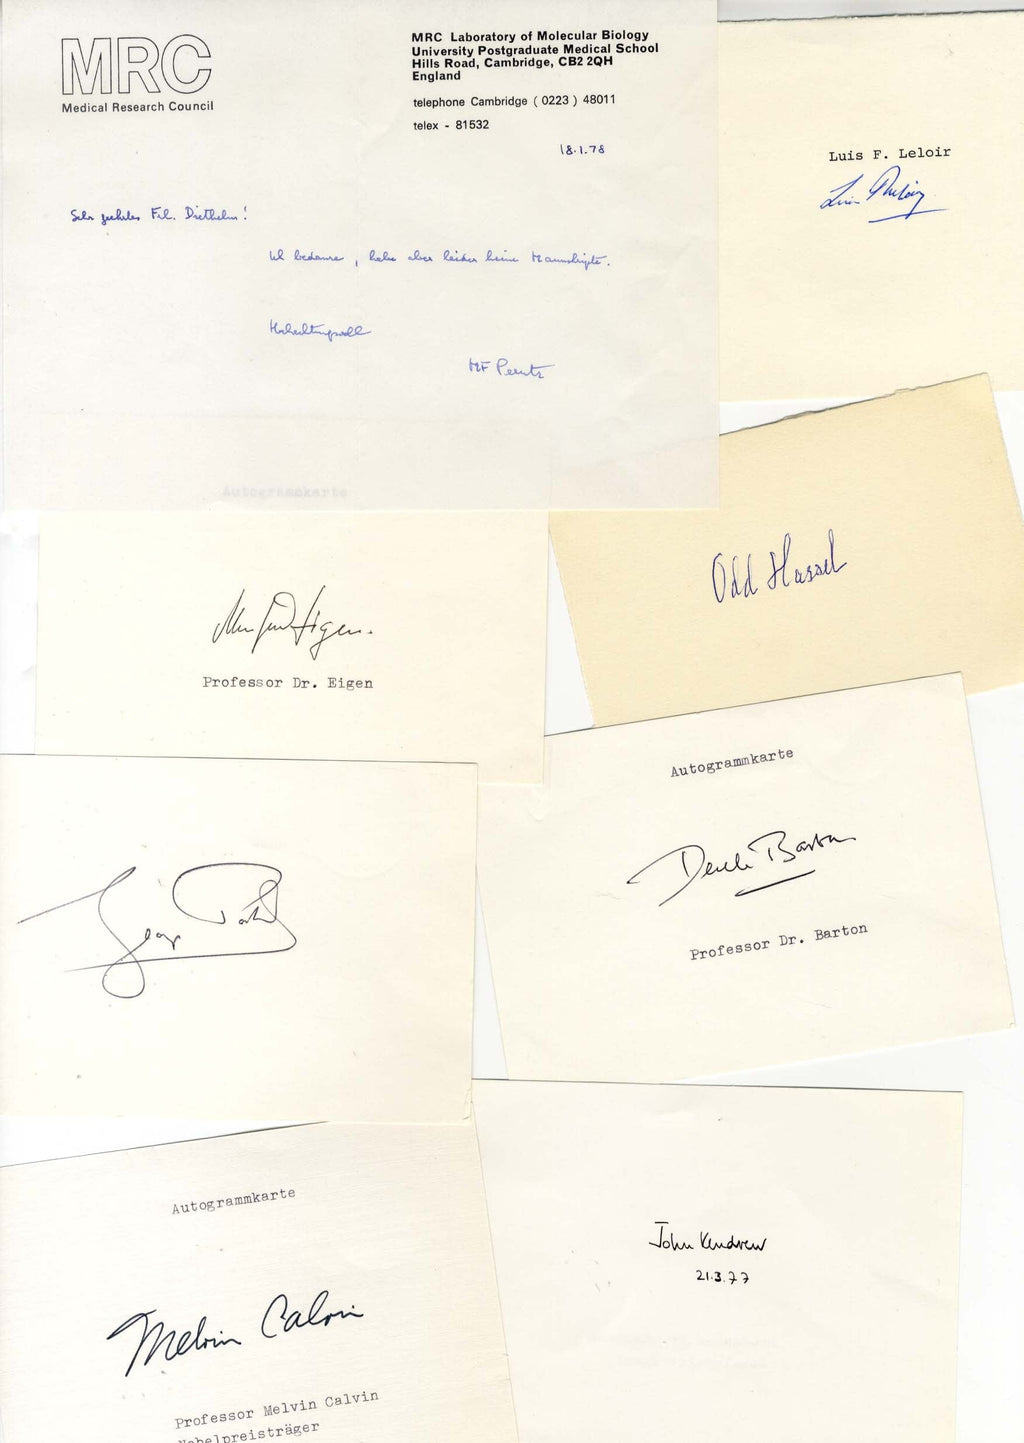 MRC
Medical Research Council
MRC Laboratory of Molecular Biology
University Postgraduate Medical School
Hills Road, Cambridge, CB2 2QH
England
telephone Cambridge ( 0223 ) 48011
telex - 81532
18.1.78
Sehr geehrtes Frl. Diethelm !
Ich bedaure , habe aber leider keine Manuskripte.
Hochachtungsvoll
MF Perutz
Autogrammkarte
Luis F. Leloir
Luis F Leloir
Odd Hassel
Manfred Eigen.
Professor Dr. Eigen
Autogrammkarte
Derek Barton
Professor Dr. Barton
George Porter
Autogrammkarte
Melvin Calvin
Professor Melvin Calvin
Nobelpreisträger
John Kendrew
21.3.77